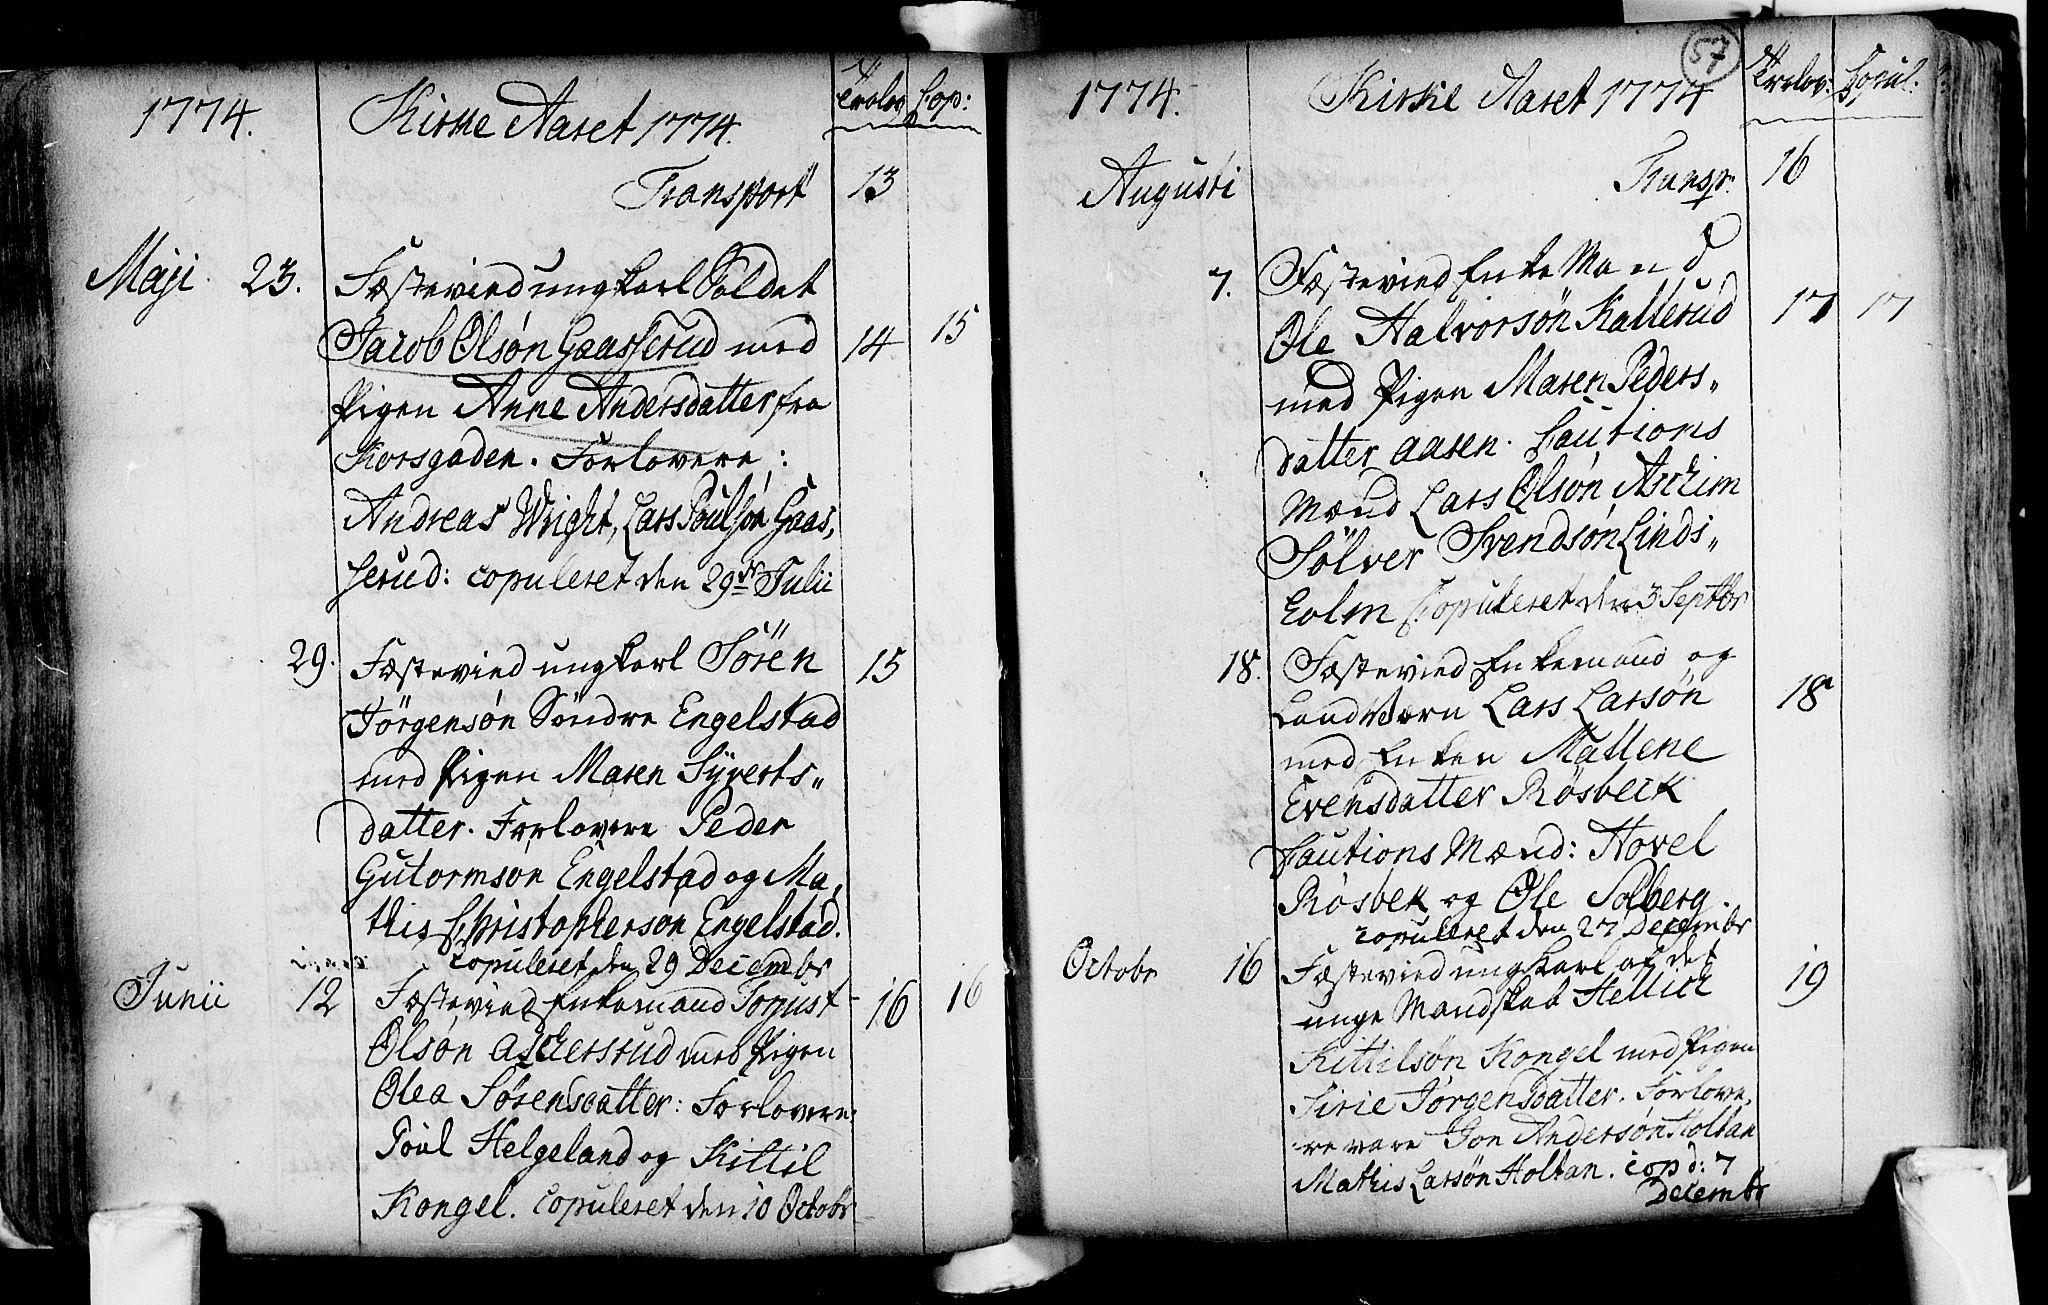 1774.
Kirke Aaret 1774.
Trolov Cop:
Transport 13
Maji 23. Fæsteviedungkarl Soldat
Jacob Olsøn Gaasserud med 14 15
Pigen Anne Andersdatter fra
Korsgaden. Forlovere:
Andreas Wright, Lars Poulsøn Gaas,
serud: copuleret den 29de Julii
29. Fæstevied ungkarl Sören 15
Jörgensøn Søndre Engelstad
med Pigen Maren Syverts„
datter. Forlovere Peder
Gutormsøn Engelstad og Ma,
this Christophersøn Engelstad.
copuleret den 29 Decembr
Junii 12 Fæstevied Enkemand Torjust 16 16
Olsøn Askersrud med Pigen
Olea Sørensdatter: Forlovere:
Poul Helgeland og Kittil
Kongel. copuleret den 10 Octobr
57
1774.
Kirke Aaret 1774
Trolov: Copul:
Augusti
Transp: 16
7. Fæstevied Enke Mand
Ole Halvorsön Kallerud 17 17
med Pigen Maren Peders„
datter Aasen. Cautions
Mænd Lars Olsøn Aschim
Sölver Svendsøn Linds„
holm Copuleret den 3 Septbr
18. Fæstevied Enkemand og
LandVærn Lars Larsøn 18
med Enken Mallene
Evensdatter Røsbeck
Cautions Mænd: Hovel
Røsbek og Ole Solberg.
copuleret den 27 Decembr
Octobr 16 Fæstevied ungkarl af det
unge Mandskab Hellick 19
Kittilsøn Kongel med Pigen
Sirie Jørgensdatter. Forlove,
re vare Jon Andersøn Holtan
Mathis Larsøn Holtan. cop d: 7
Decembr